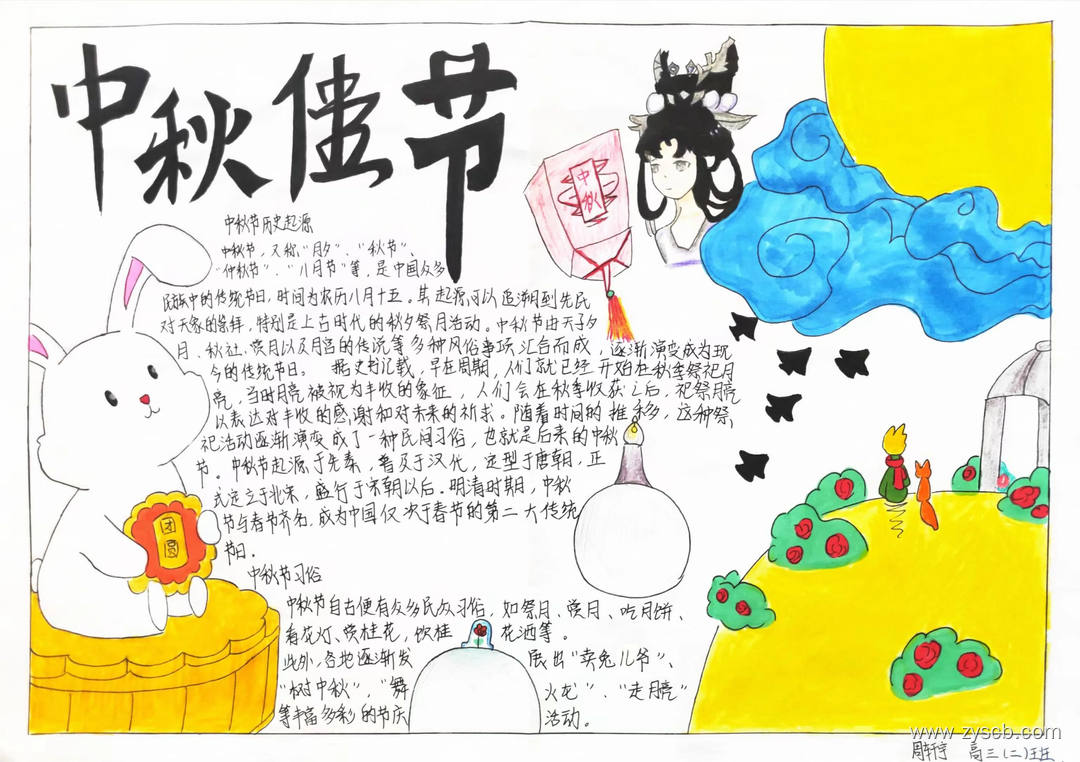 中秋佳节
中秋
中秋节历史起源
中秋节，又称"月夕"、"秋节"、
"仲秋节"、"八月节"等，是中国众多
民族中的传统节日，时间为农历八月十五。其起源可以追溯到先民
对天象的崇拜，特别是上古时代的秋夕祭月活动。中秋节由天子夕
月、秋社、赏月以及月宫的传说等多种风俗事项汇合而成，逐渐演变成为现
今的传统节日。 据史书记载，早在周期，人们就已经开始在秋季祭祀月
亮，当时月亮被视为丰收的象征，人们会在秋季收获之后，祀祭月亮
以表达对丰收的感谢和对未来的祈求。随着时间的推移，这种祭
祀活动逐渐演变成了一种民间习俗，也就是后来的中秋
节。中秋节起源于先秦，普及于汉代，定型于唐朝，正
式定立于北宋，盛行于宋朝以后。明清时期，中秋
节与春节齐名，成为中国仅次于春节的第二大传统
节日。
团
圆
中秋节习俗
中秋节自古便有众多民众习俗，如祭月、赏月、吃月饼、
看花灯、赏桂花，饮桂花酒等。
此外，各地逐渐发展出"卖兔儿爷"、
"树中秋"，"舞火龙"、"走月亮"
等丰富多彩的节庆活动。
www.zyscb.com
周轩宇 高三(二)班